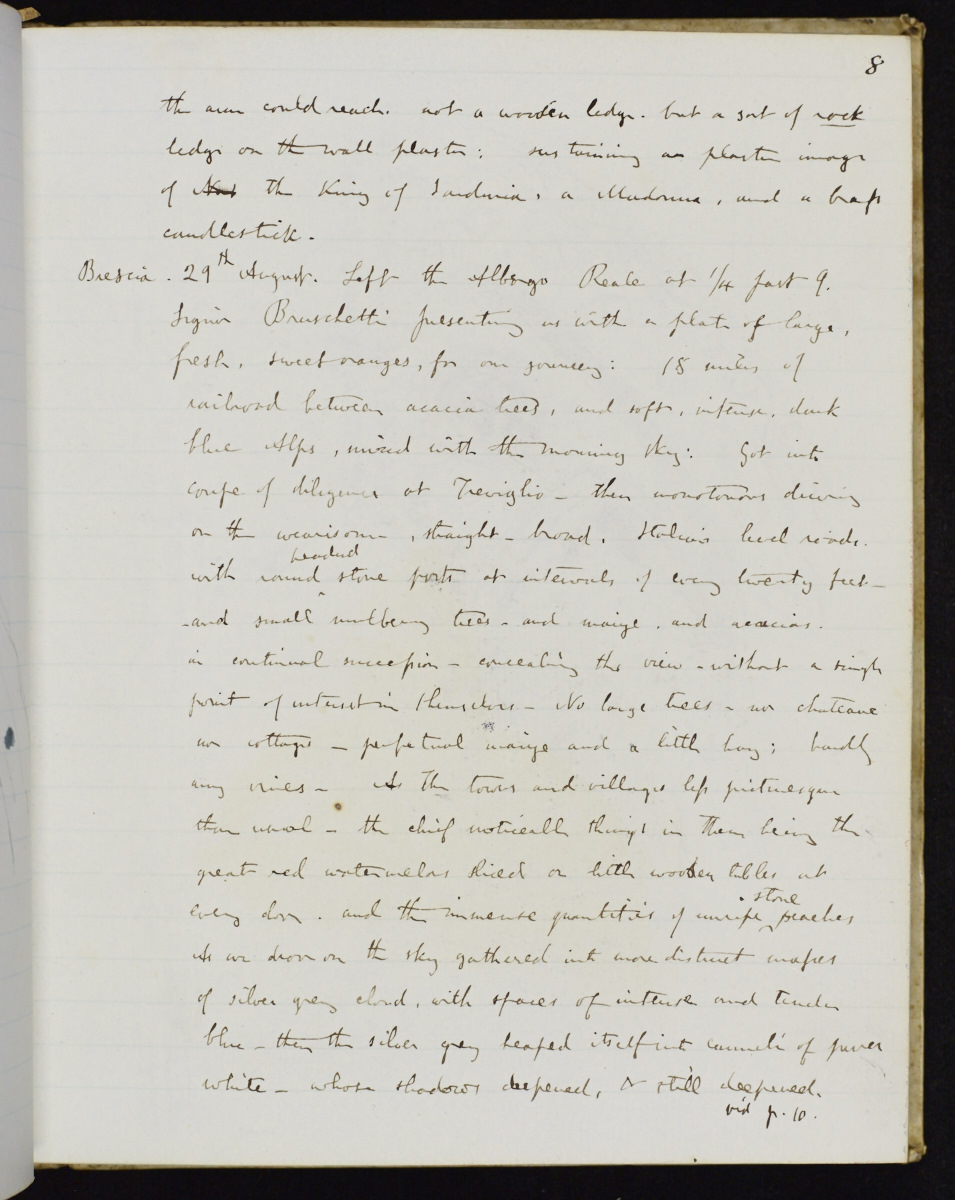 8
the arm could reach. not a wooden ledge. but a sort of rock
ledge on the wall plaster: sustaining a plaster image
of the King of Sardinia, a Madonna, and a brass
candlestick.
Brescia. 29th August. Left the Albergo Reale at 1/4 past 9.
Signor Bruschetti presenting us with a plate of large,
fresh, sweet oranges, for our journey: 18 miles of
railroad between acacia trees, and soft, intense, dark
blue Alps, mixed with the morning sky: Got into
coupe of diligence at Treviglio - then monotonous driving
on the wearisome, straight - broad, Italian level roads.
with round headed stone posts at intervals of every twenty feet -
- and small mulberry trees - and maize, and acacias.
in continual succession - concealing the view - without a single
point of interest in themselves - No large trees - no chateaux
no cottages - perpetual maize and a little hay; hardly
any vines - As the towns and villages less picturesque
than usual - the chief noticeable things in them being the
great red watermelons sliced on little wooden tables at
every door. and the immense quantities of unripe stone peaches
As we drove on the sky gathered into more distinct masses
of silver grey cloud, with spaces of intense and tender
blue - then the silver grey heaped itself into cumuli of purer
white - whose shadows deepened, & still deepened.
vid p. 10.